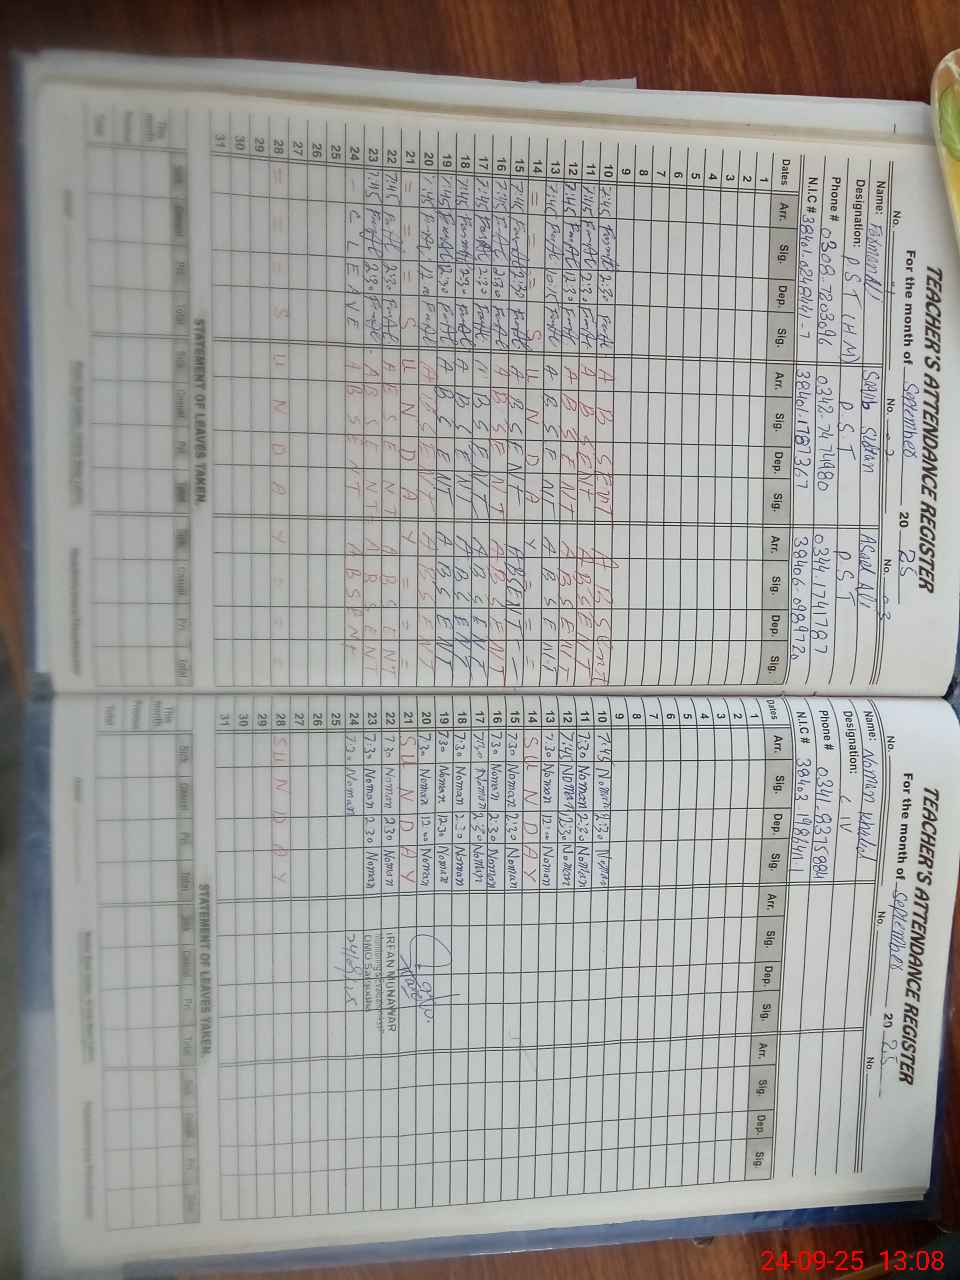 TEACHER'S ATTENDANCE REGISTER
For the month of September 20 25
No. 1 No. 2 No. 03
Name: Sajib Sultan Asad Ali
Designation: P S T (H M) P. S. T P S T
Phone # 0308.7803096 0342.7474980 0344.1741787
N.I.C # 38401.1787367
Dates Arr. Sig. Dep. Sig. Arr. Sig. Dep. Sig. Arr. Sig. Dep. Sig.
1
2
3
4
5
6
7
8
9
10 7:45 2:30 ABSENT ABSENT
11 7:45 2:30 ABSENT ABSENT
12 7:45 12:30 ABSENT ABSENT
13 7:45 10:15 ABSENT ABSENT
14 = = = = S U N D A Y = =
15 7:45 2:30 ABSENT ABSENT
16 7:45 2:30 ABSENT ABSENT
17 7:45 2:30 ABSENT ABSENT
18 7:45 2:30 ABSENT ABSENT
19 7:45 12:30 ABSENT ABSENT
20 7:45 ABSENT ABSENT
21 = = = = S U N D A Y = = =
22 7:45 2:30 ABSENT
23 7:45 2:30 ABSENT ABSENT
24 - C LEAVE ABSENT ABSENT
25
26
27
28 = = = = S U N D A Y = = =
29
30
31
STATEMENT OF LEAVES TAKEN.
Sick Casual Pri. Total Sick Casual Pri. Total Sick Casual Pri. Total
This month
Previous
Total
TEACHER'S ATTENDANCE REGISTER
For the month of September 20 25
No. No. No.
Name: Noman Khalid
Designation: C IV
Phone # 0341.8375884
N.I.C #
Dates Arr. Sig. Dep. Sig. Arr. Sig. Dep. Sig. Arr. Sig. Dep. Sig.
1
2
3
4
5
6
7
8
9
10 7:45 Noman 2:30 Noman
11 7:30 Noman 2:30 Noman
12 7:45 Noman 12:30 Noman
13 7:30 Noman 12:00 Noman
14 S U N D A Y
15 7:30 Noman 2:30 Noman
16 7:30 Noman 2:30 Noman
17 7:30 Noman 2:30 Noman
18 7:30 Noman 2:30 Noman
19 7:30 Noman 12:30 Noman
20 7:30 Noman 12:00 Noman
21 S U N D A Y
22 7:30 Noman 2:30 Noman
23 7:30 Noman 2:30 Noman
24 7:30 Noman
25
26
27
28 S U N D A Y
29
30
31
IRFAN MUNAWAR
DMO Sargodha
STATEMENT OF LEAVES TAKEN.
Sick Casual Pri. Total Sick Casual Pri. Total Sick Casual Pri. Total
This month
Previous
Total
24-09-25 13:08